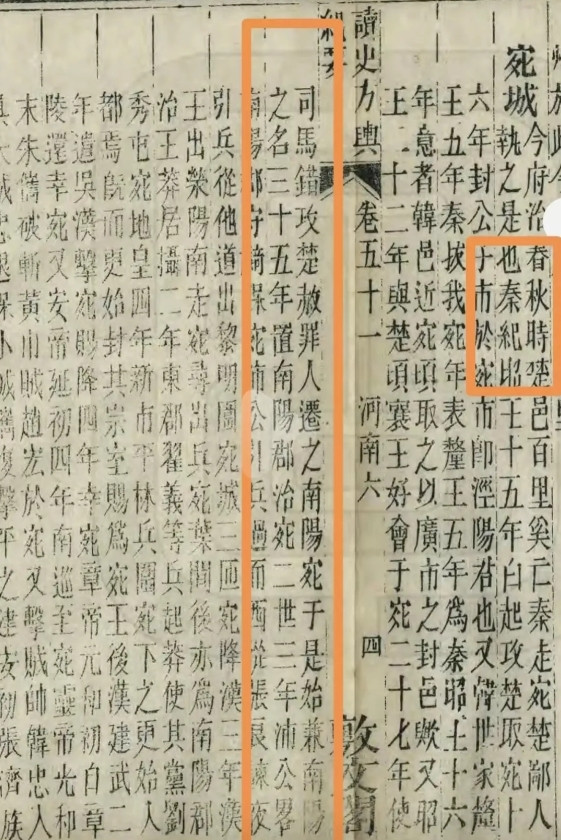 宛城
今府治春秋時楚邑百里奚亡秦走宛楚鄙人
執之是也秦紀昭王十五年白起攻楚取宛十
六年封公子市於宛市卽涇陽君也又韓世家釐
王五年秦拔我宛年表釐王五年爲秦昭王十六
年意者韓邑近宛頃取之以廣市之封邑歟又昭
王二十二年與楚頃襄王好會于宛二十七年使
讀史方輿紀要 卷五十一 河南六 四 敷文閣
司馬錯攻楚赦罪人遷之南陽宛于是始兼南陽
之名三十五年置南陽郡治宛二世三年沛公畧
南陽郡守齮保宛沛公引兵過而西從張良諫夜
引兵從他道出黎明圍宛城三匝宛降漢三年漢
王出滎陽南走宛尋出兵宛葉間後亦爲南陽郡
治王莽居攝二年東郡翟義等兵起莽使其黨劉
秀屯宛地皇四年新市平林兵圍宛下之更始入
都焉旣而更始封其宗室賜爲宛王後漢建武二
年遣吳漢擊宛賜降四年幸宛章帝元和初自章
陵還幸宛又安帝延初四年南巡至宛靈帝光和
末朱儁破斬黃巾賊趙宏於宛又擊賊帥韓忠入